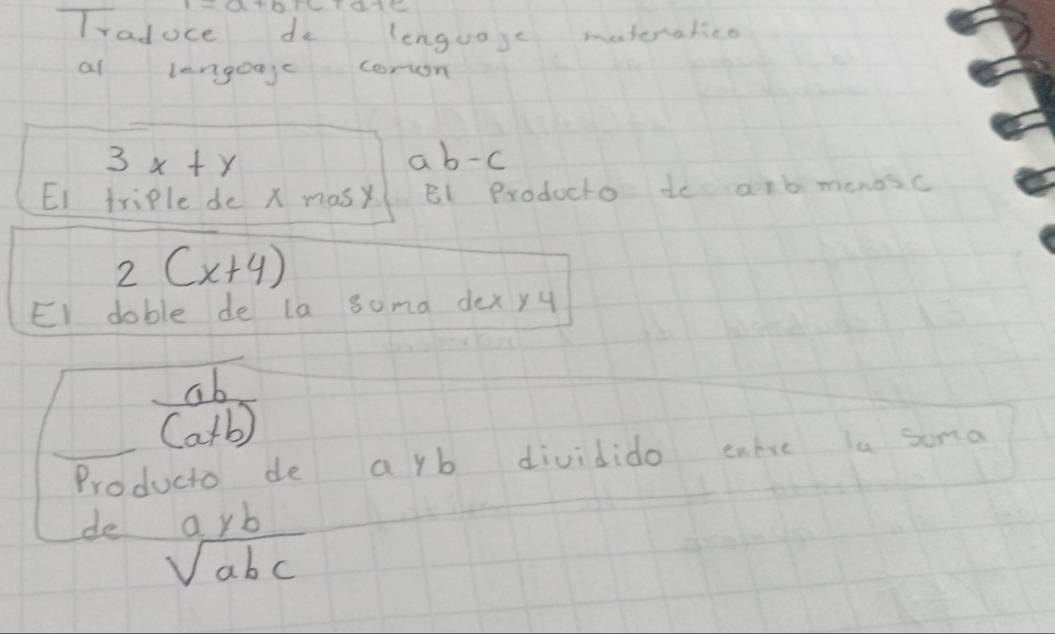 Traduce de lenguaje matematico
al lenguaje comun
3x+y
El triple de x mas y
ab-c
El Producto de a y b menos c
2 (x+4)
El doble de la suma de x y 4
ab
(a+b)
Producto de a y b dividido entre la suma
de a y b
√abc